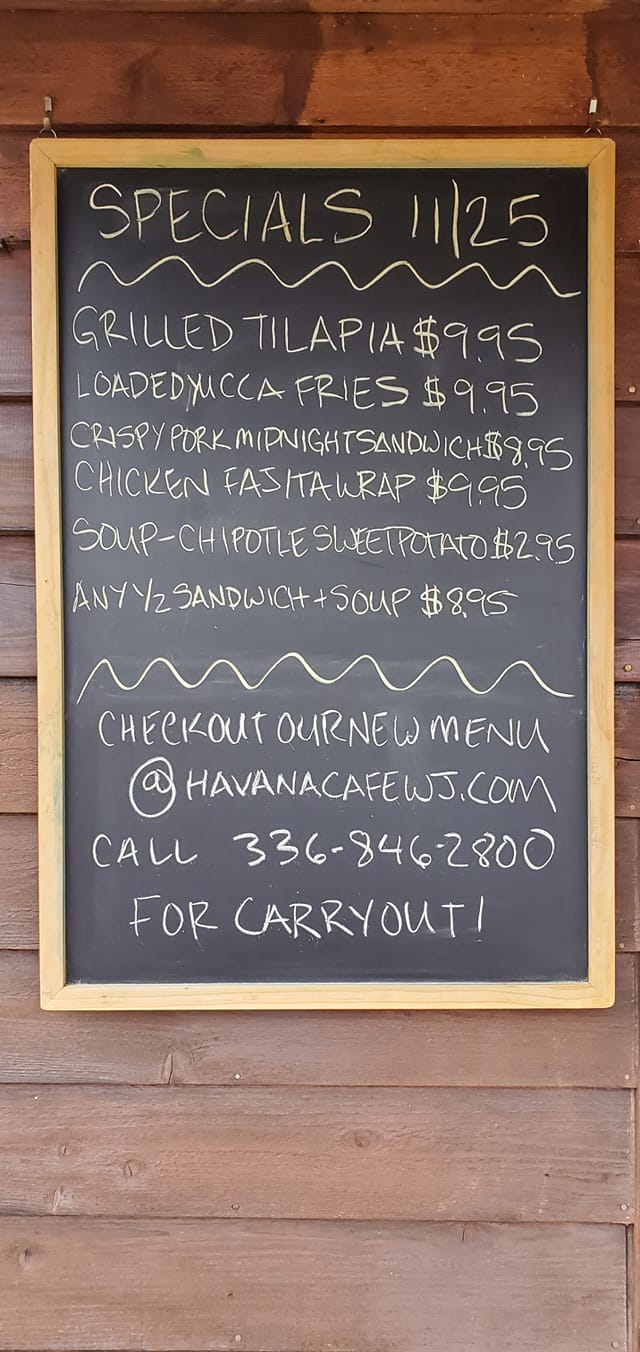 SPECIALS 11/25
GRILLED TILAPIA $9.95
LOADED YUCCA FRIES $9.95
CRISPY PORK MIDNIGHT SANDWICH $8.95
CHICKEN FAJITA WRAP $9.95
SOUP-CHIPOTLE SWEET POTATO $2.95
ANY 1/2 SANDWICH + SOUP $8.95
CHECKOUT OUR NEW MENU
@ HAVANACAFEWJ.COM
CALL 336-846-2800
FOR CARRYOUT!